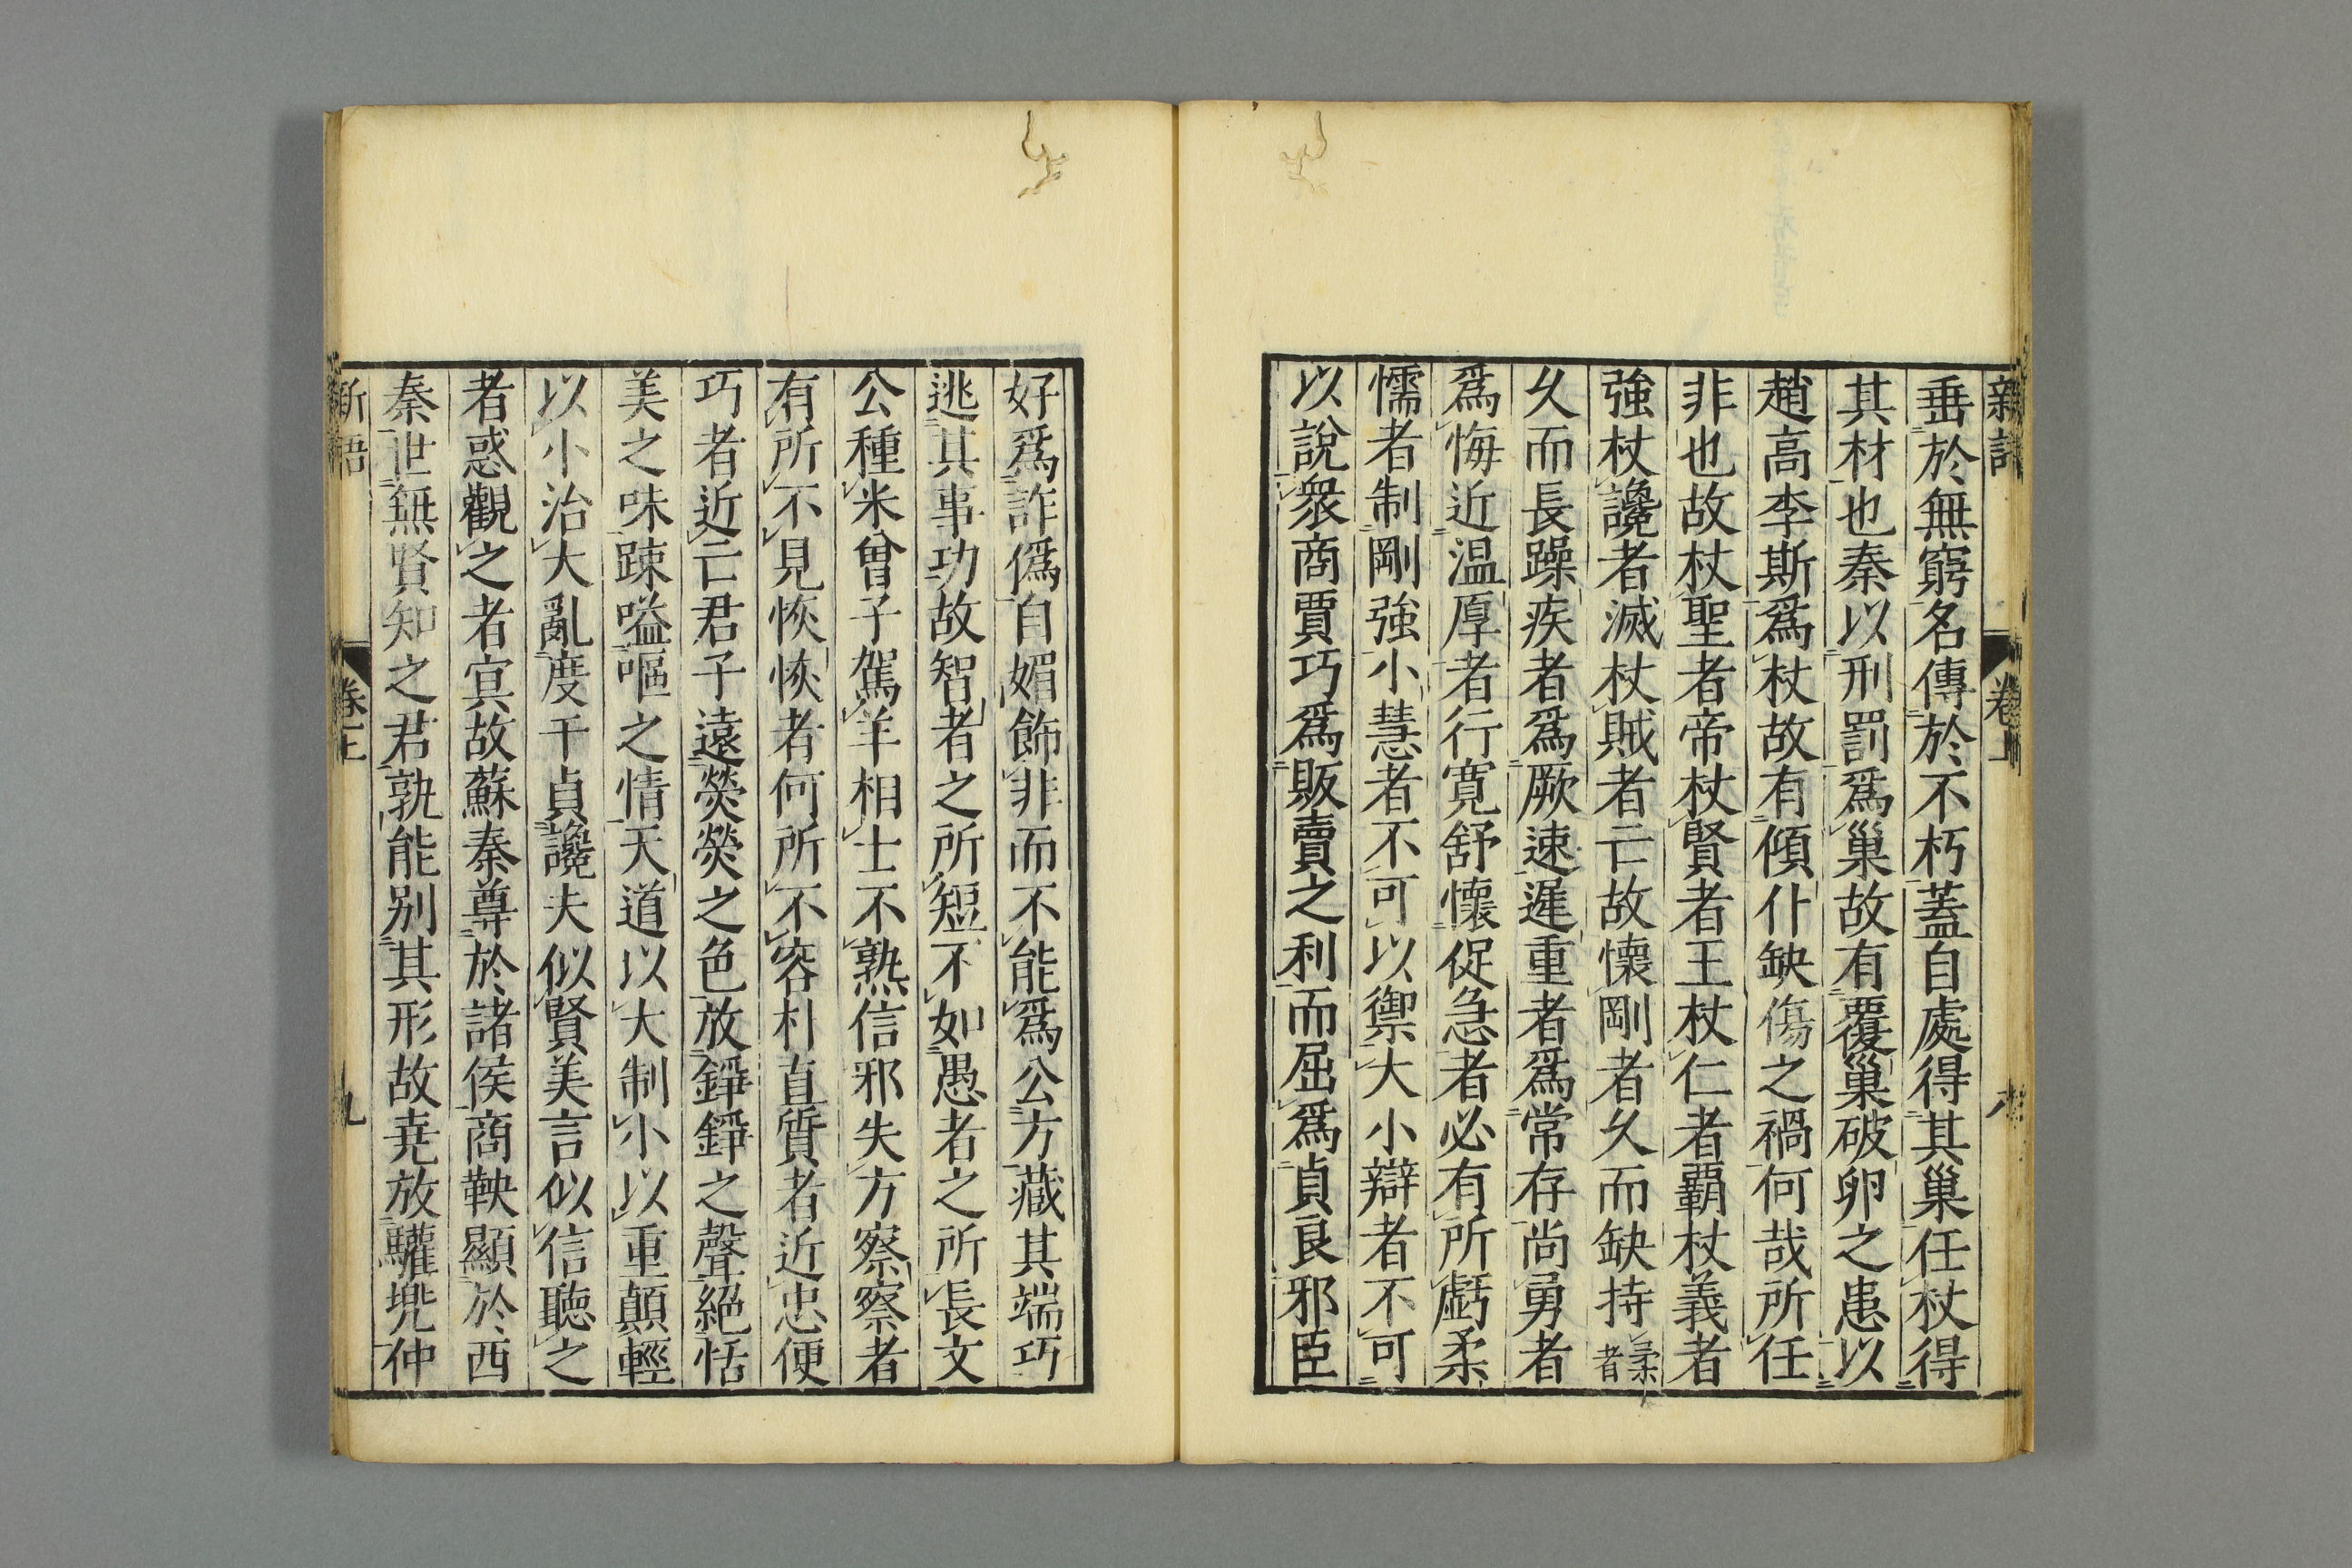 新語
卷上
八
垂於無窮名傳於不朽蓋自處得其巢任杖得
其材也秦以刑罰爲巢故有覆巢破卵之患以
趙高李斯爲杖故有傾仆缺傷之禍何哉所任
非也故杖聖者帝杖賢者王杖仁者覇杖義者
強杖讒者滅杖賊者亡故懷剛者久而缺持柔者
久而長躁疾者爲厥速遲重者爲常存尚勇者
爲悔近温厚者行寛舒懷促急者必有所虧柔
懦者制剛強小慧者不可以禦大小辯者不可
以說衆商賈巧爲販賣之利而屈爲貞良邪臣
好爲詐僞自媚飾非而不能爲公方藏其端巧
逃其事功故智者之所短不如愚者之所長文
公種米曾子駕羊相士不熟信邪失方察察者
有所不見恢恢者何所不容朴直質者近忠便
巧者近亡君子遠熒熒之色放錚錚之聲絕恬
美之味踈嗌嘔之情天道以大制小以重顛輕
以小治大亂度干貞讒夫似賢美言似信聽之
者惑觀之者㝠故蘇秦尊於諸侯商鞅顯於西
秦世無賢知之君孰能别其形故堯放驩兜仲
新語
卷上
九